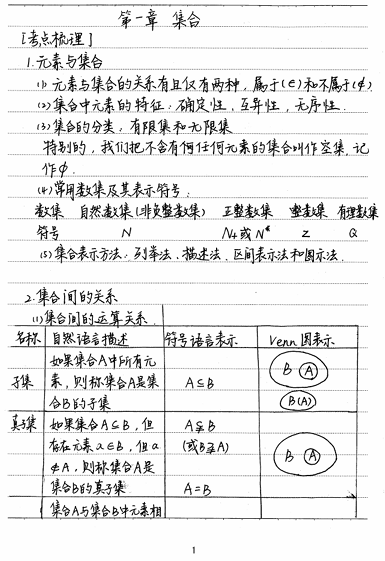 第一章 集合
[考点梳理]
1.元素与集合
(1) 元素与集合的关系有且仅有两种，属于(∈)和不属于(∉)
(2)集合中元素的特征：确定性，互异性，无序性.
(3)集合的分类：有限集和无限集
特别的，我们把不含有何任何元素的集合叫作空集，记
作∅.
(4)常用数集及其表示符号.
数集 自然数集(非负整数集) 正整数集 整数集 有理数集
符号 N N₊或N* Z Q
(5)集合表示方法：列举法、描述法、区间表示法和图示法.
2.集合间的关系
(1)集合间的运算关系.
名称 自然语言描述 符号语言表示 Venn图表示
如果集合A中所有元
子集 素，则称集合A是集 A⊆B B A
合B的子集 B(A)
真子集 如果集合A⊆B，但 A⫋B
存在元素a∈B，但a (或B⫌A) B A
∉A，则称集合A是
集合B的真子集 A=B
集合A与集合B中元素相
1